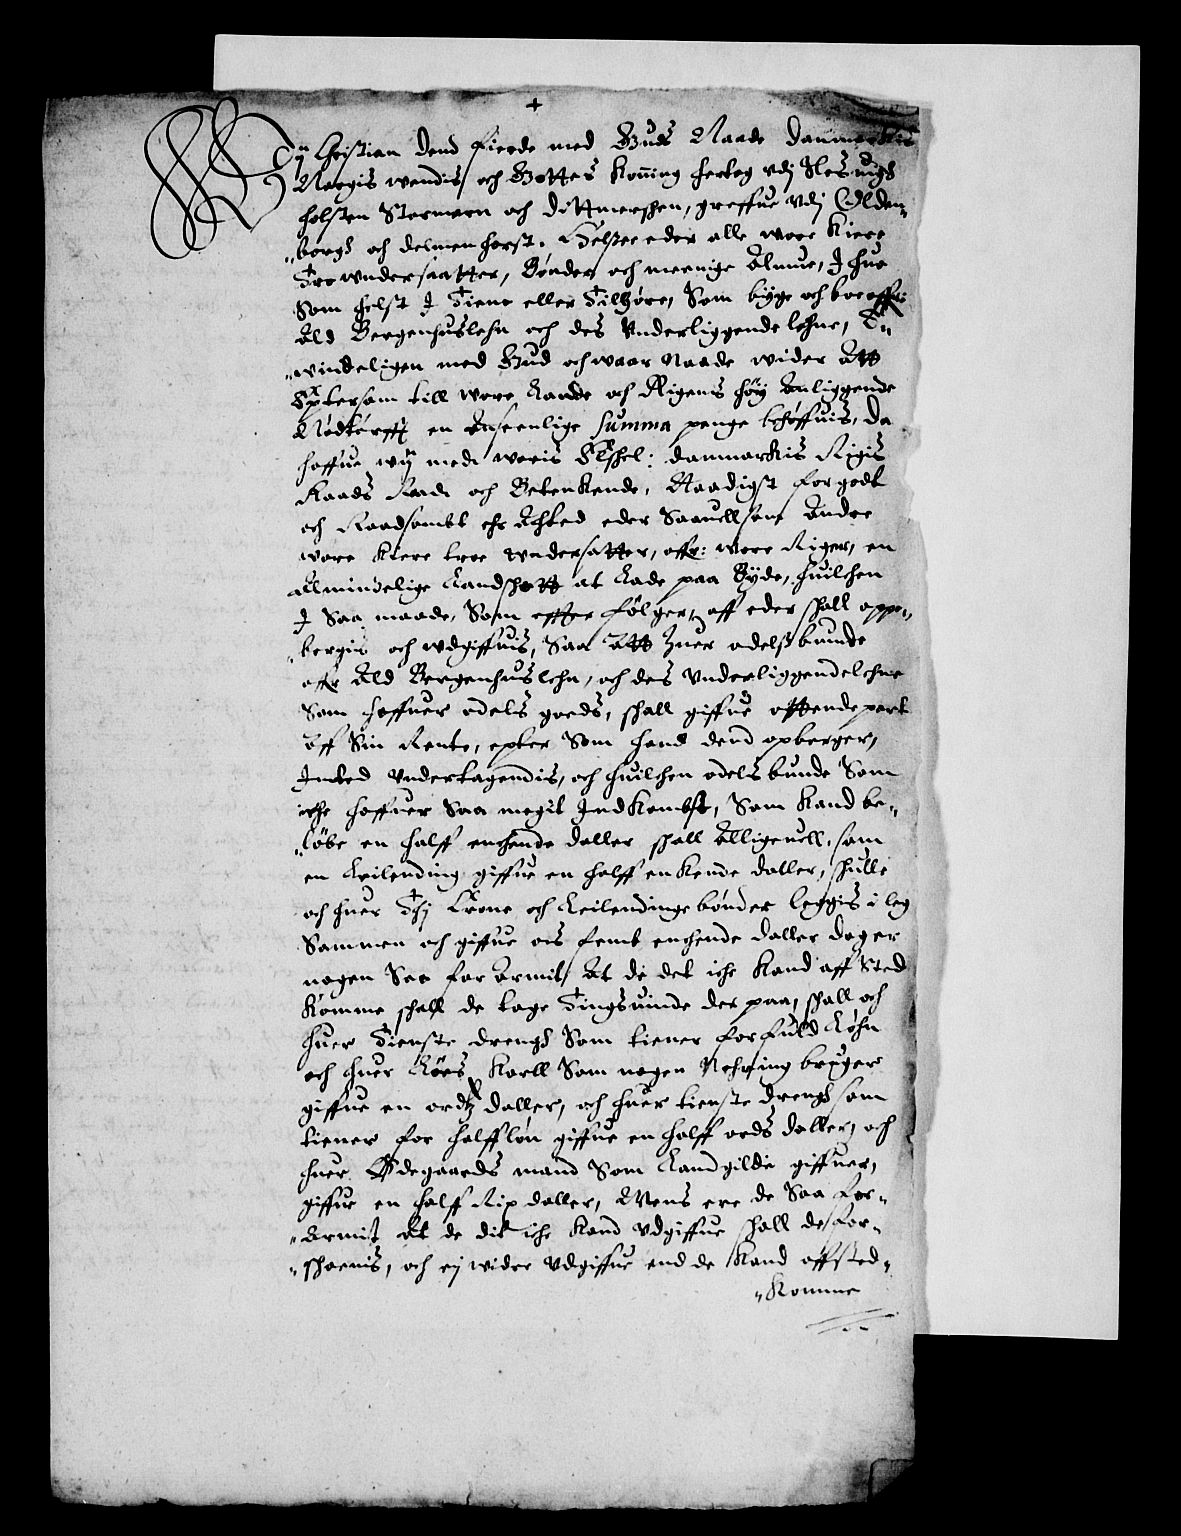 +
Wÿ Christian dend fierde med Guds Naade danmarckis
Norgis wendis och Gottes Koning hertog vdj Slesuigh
holsten Stormarn och dittmershen, greffue vdj Olden-
"borgh och delmenhorst. Helsse eder alle wore Kiere
Tro wndersaatter, Bønder och meenige Almue, J hue
Som helst J Tiene eller Tilhøre, Som bÿge och boe offr:
Ald Bergenhuslehn och des Vnderliggende lehne,
"windeligen med Gud och waar Naade wider Att
Eptersom till wore Lande och Rigens høÿ Anliggende
Nødtørfft en Anseenlige Summa penge behøffuis, da
haffue wÿ med woris Elshel: danmarckis Rigis
Raads Raad och Betenkende, Naadigst for godt
och Raadsombt ehr Achted eder Saauellsom Andre
wore Kiere troe wndersatter, offr: wore Riger, en
Almindelige Landshatt at Lade paa Byde, huilchen
J Saa maade, Som effter følger, aff eder shall oppe-
"bergis och wdgiffuis, Saa att huer odelsbunde
offr Ald Bergenhuslehn, och des Vnderliggendelehne
Som haffuer odels goeds, shall giffue ottendepart
Aff Sin Rente, epter Som hand dend opberger,
Jnted Vndertagendis, och huilchen odelsbunde Som
iche haffuer Saa megit Jndkombst, Som Kand be-
"løbe en halff enchende daller shall Alligeuell, som
en Leilending giffue en halff enkende daller, shulle
och huer Thj Crone och Leilendinge bønder leggis i leg
Sammen och giffue os femb enchende daller dog er
nogen Saa for Armit, At de det iche Kand aff Sted
Komme shall de tage Tingsuinde der paa, shall och
huer Tienste drengh Som tiener for fuld Løhn
och huer Løes Karll Som nogen Nehring bruger
giffue en ordh daller, och huer tienste drengh som
tiener for halff løn giffue en halff ords daller, och
huer Ødegaards mand Som Landgilde giffuer,
giffue en halff Rix daller, Mens ere de Saa for-
"Armit At de dit iche Kand vdgiffue shall de for-
"shaenis, och ej wider vdgiffue end de Kand affsted-
"Komme